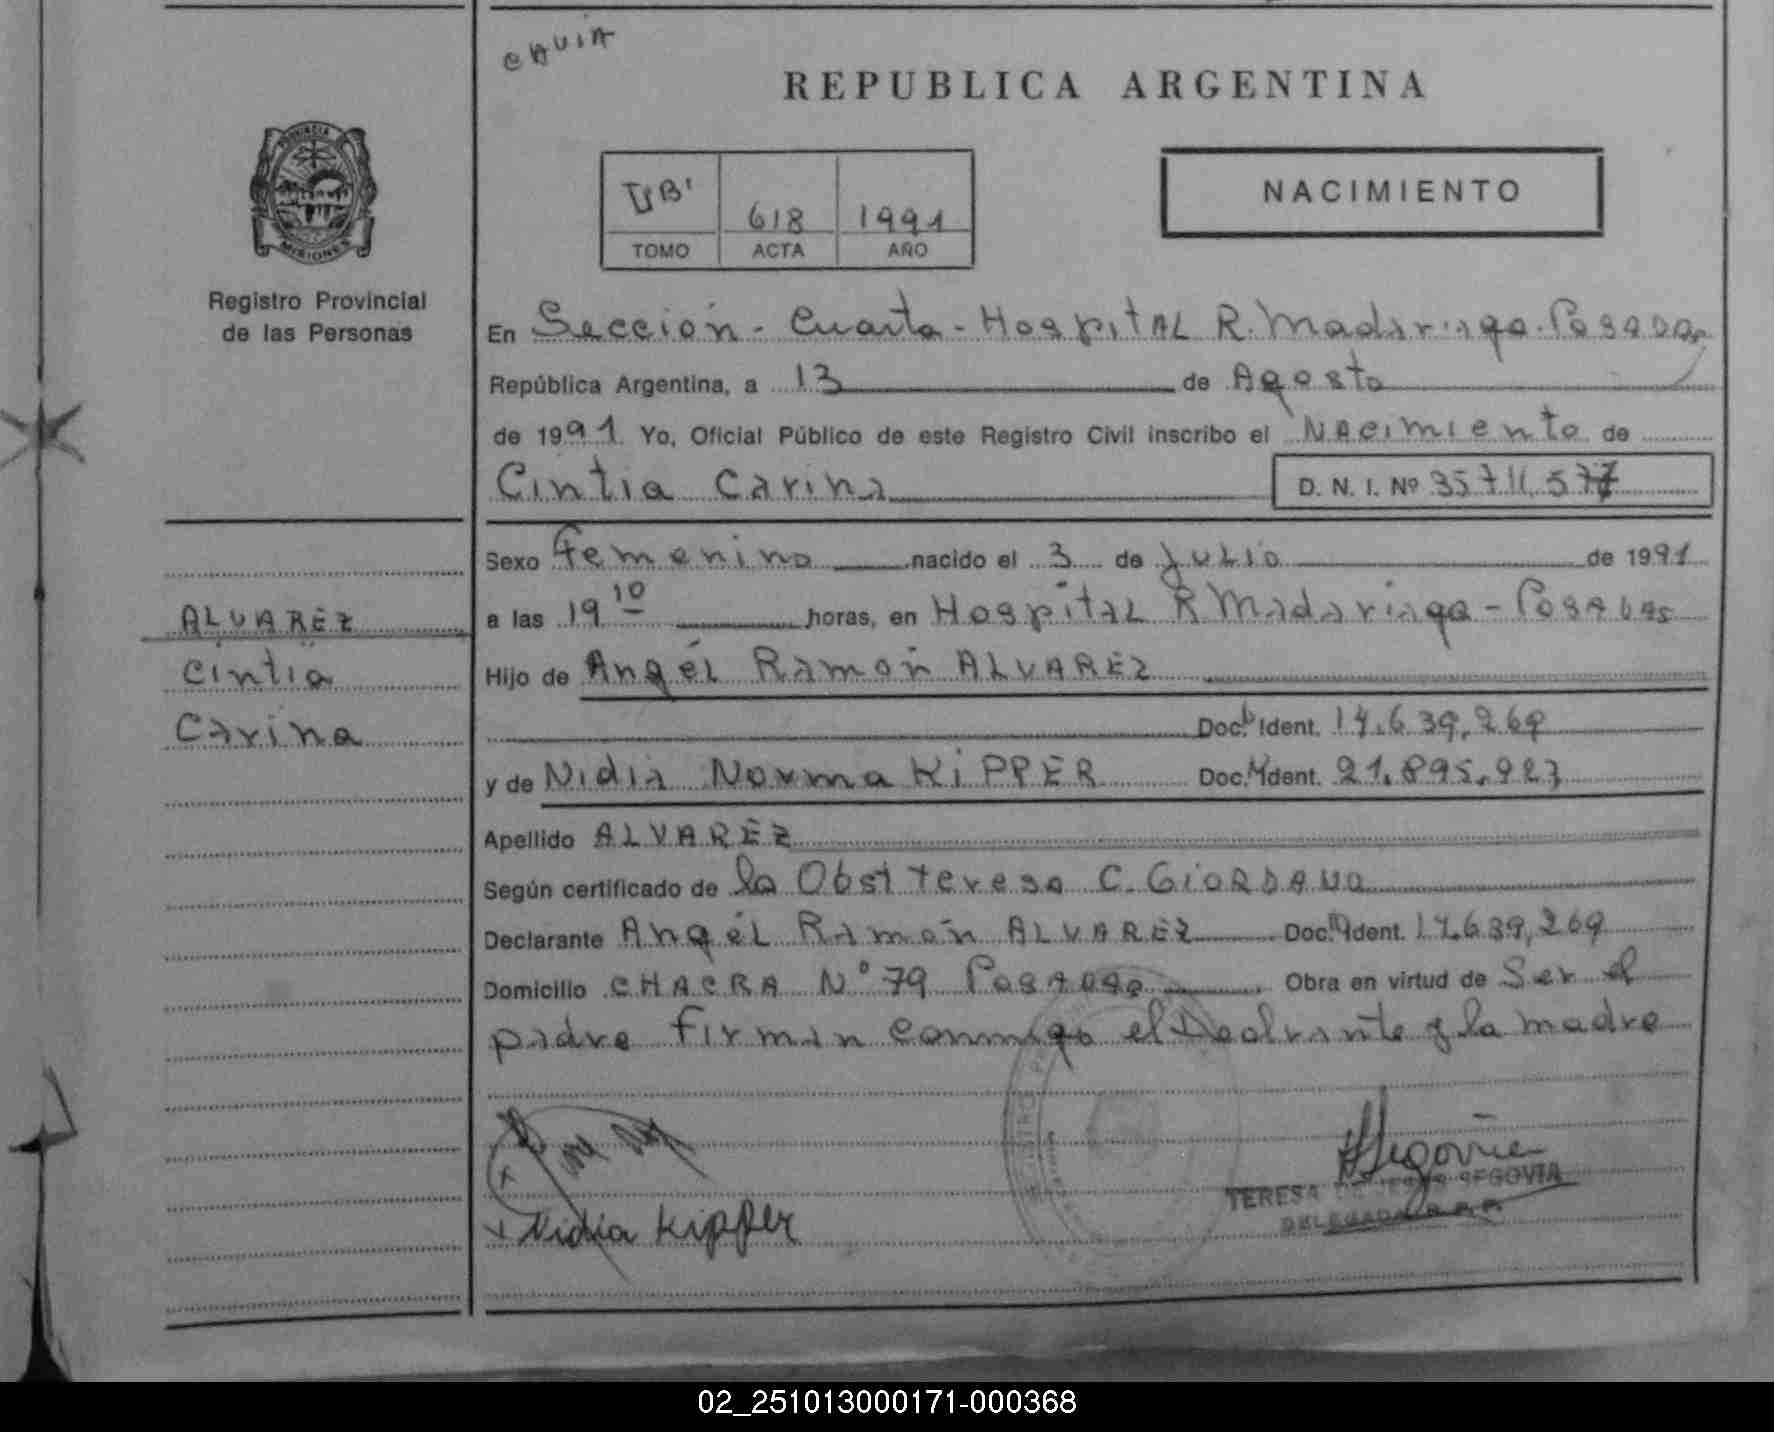 CAUIA
REPUBLICA ARGENTINA
PROVINCIA
MISIONES
Registro Provincial
de las Personas
618 1991
TOMO ACTA AÑO
NACIMIENTO
En Sección - Cuarta - Hospital R. Madariaga. Posadas
República Argentina, a 13 de Agosto
de 1991 Yo, Oficial Público de este Registro Civil inscribo el Nacimiento de
Cintia Carina D. N. I. Nº 35711.577
Sexo Femenino nacido el 3 de Julio de 1991
a las 19 10 horas, en Hospital R Madariaga - Posadas
Hijo de Angél Ramón ALVAREZ
Doc. Ident. 17.639.269
y de Nidia Norma KiPPER Doc. Ident. 21.895.927
Apellido ALVAREZ
Según certificado de la Obst Teresa C. GiORDANO
Declarante Angél Ramón ALVAREZ Doc. Ident. 17.639,269
Domicilio CHACRA Nº 79 Posadas Obra en virtud de Ser el
padre Firman conmigo el Declrante y la madre
ALVAREZ
Cintia
Carina
Nidia Kipper
Segovia
TERESA DE JESUS SEGOVIA
DELEGADA
02_251013000171-000368